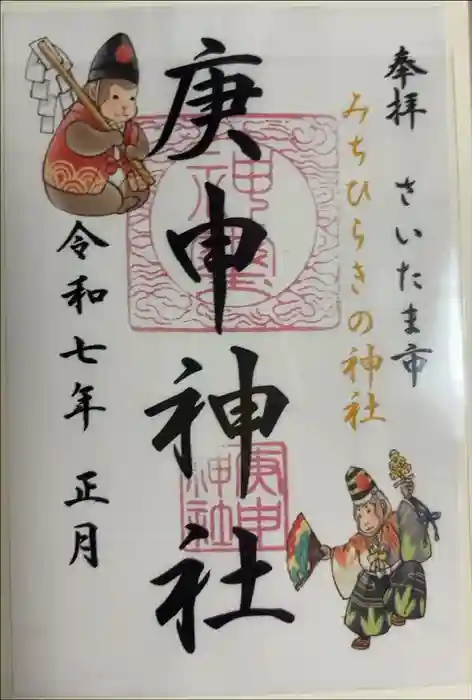 奉拝　さいたま市
みちひらきの神社
庚申神社
神璽
庚申
神社
令和七年　正月